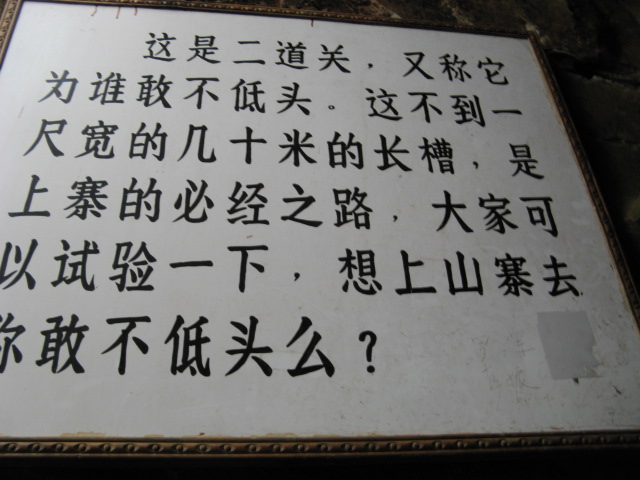 这是二道关，又称它
为谁敢不低头。这不到一
尺宽的几十米的长槽，是
上寨的必经之路，大家可
以试验一下，想上山寨去
你敢不低头么？